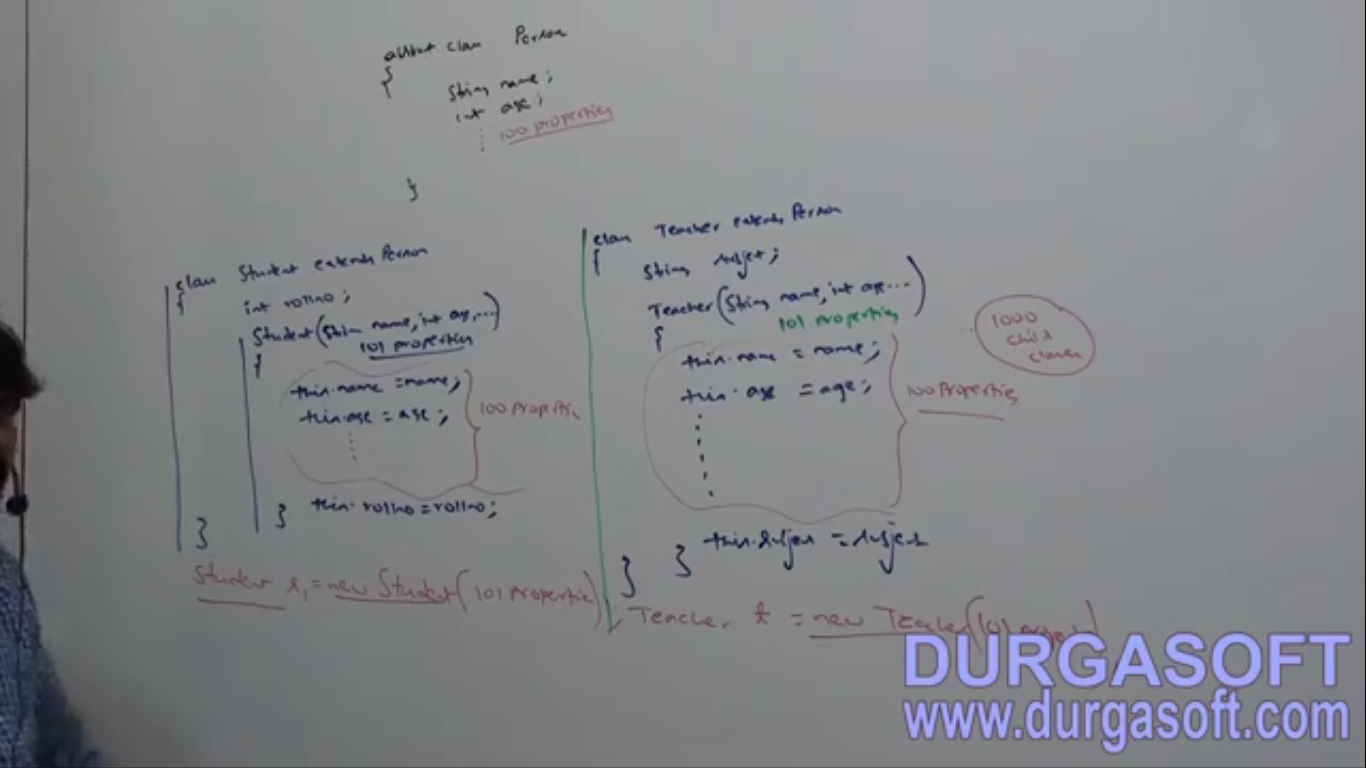 abstract class Person
{
String name;
int age;
100 properties
}
class Student extends Person
{
int rollno;
Student(String name, int age, ...)
101 properties
{
this.name = name;
this.age = age;
100 Properties
this.rollno = rollno;
}
}
Student s1 = new Student(101 Properties);
class Teacher extends Person
{
String subject;
Teacher(String name, int age...)
101 Properties
{
this.name = name;
this.age = age;
100 Properties
this.subject = subject
}
}
Teacher t = new Teacher(101
1000
child
classes
DURGASOFT
www.durgasoft.com